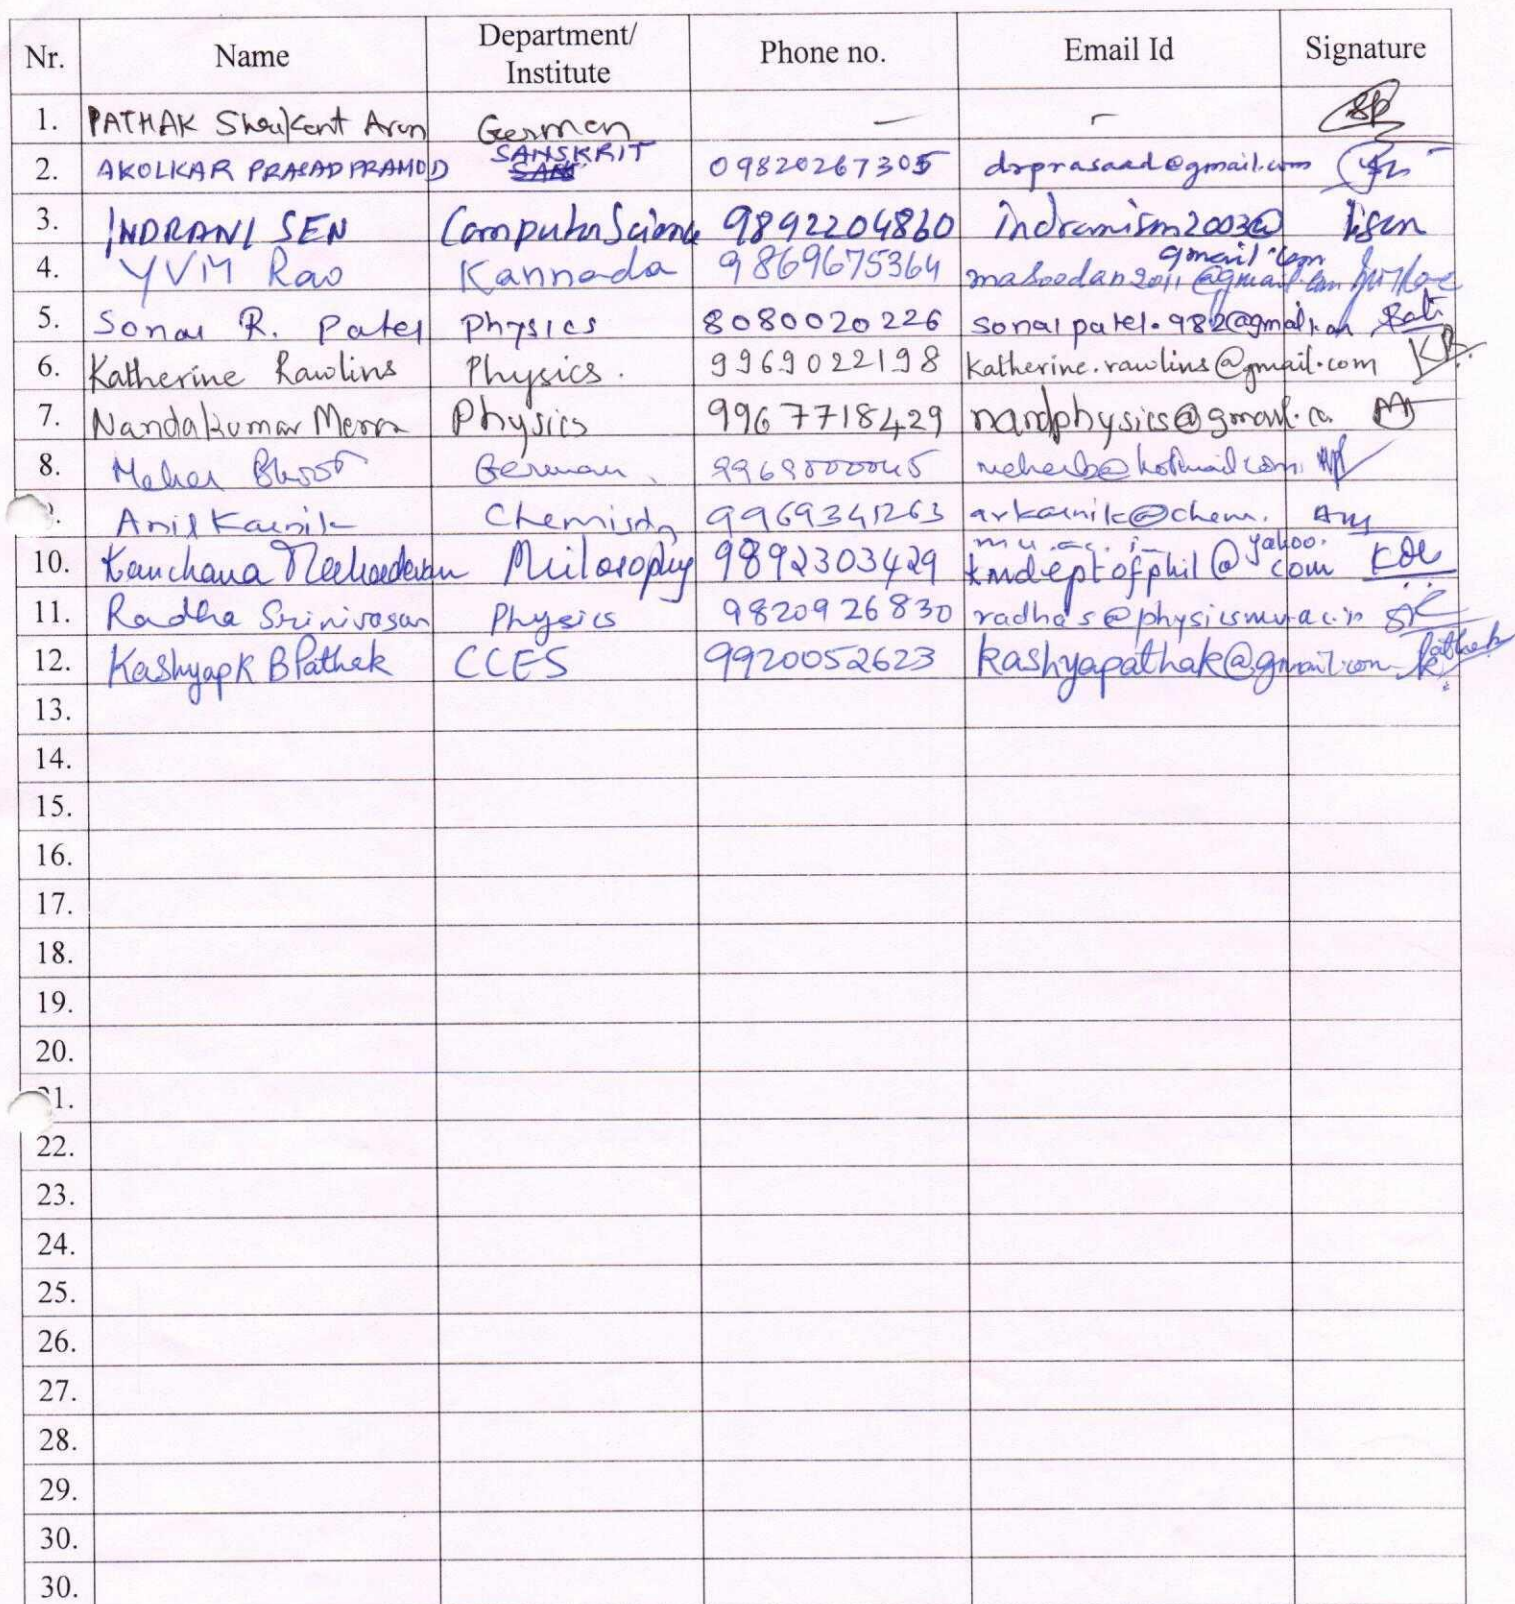 Nr. Name Department/ Institute Phone no. Email Id Signature
1. PATHAK Arun German — –
2. AKOLKAR PRASAD PRAMOD SANSKRIT 09820267305 drprasaad@gmail.com
3. INDRANI SEN Computer Science 9892204860 indranism2003@ gmail.com
4. YVM Rao Kannada 9869675364
5. Sonal R. Patel Physics 8080020226
6. Katherine Rawlins Physics. 9969022198 katherine.rawlins@gmail.com KR
7. Nandakumar Physics 9967718429
8. Meher Bhoot German meherb@hotmail.com
9. Anil Karnik Chemistry 9969341263 arkarnik@chem. mu.ac.in
10. Kanchana Mahadevan Philosophy 9892303429 kmdeptofphil@yahoo. com
11. Radha Srinivasan Physics 9820926830
12. Kashyap K B Pathak CCES 9920052623 kashyapathak@gmail.com
13.
14.
15.
16.
17.
18.
19.
20.
21.
22.
23.
24.
25.
26.
27.
28.
29.
30.
30.